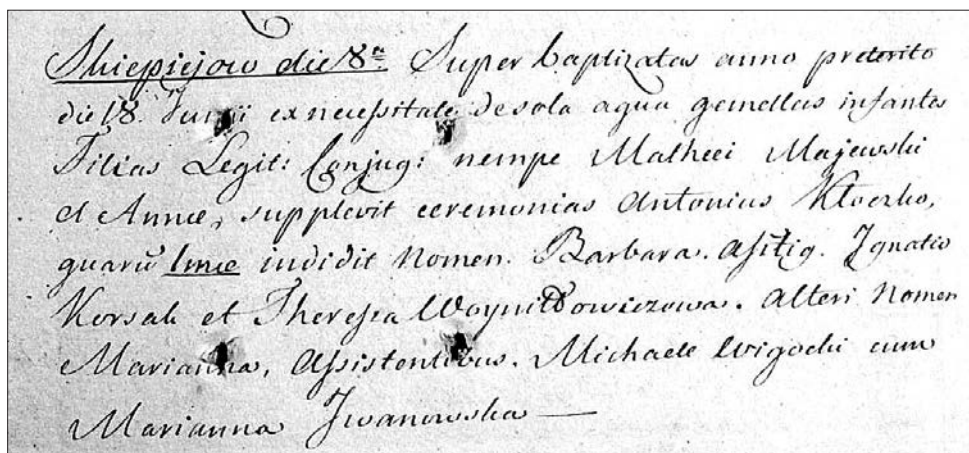 Shiepiejow die 8va Super baptizatas anno preterito
die 18. Junii ex necessitate de sola aqua gemellas infantes
Filias Legit: Conjug: nempe Mathei Majewski
et Annæ, supplevit ceremonias Antonius Kłoczko,
quarū 1mæ indidit Nomen. Barbara. Assistg. Ignatio
Korsak et Theressa Woyniłłowiczowa. Alteri Nomen
Marianna, Assistentibus. Michaele Wigocki cum
Marianna Iwanowska —